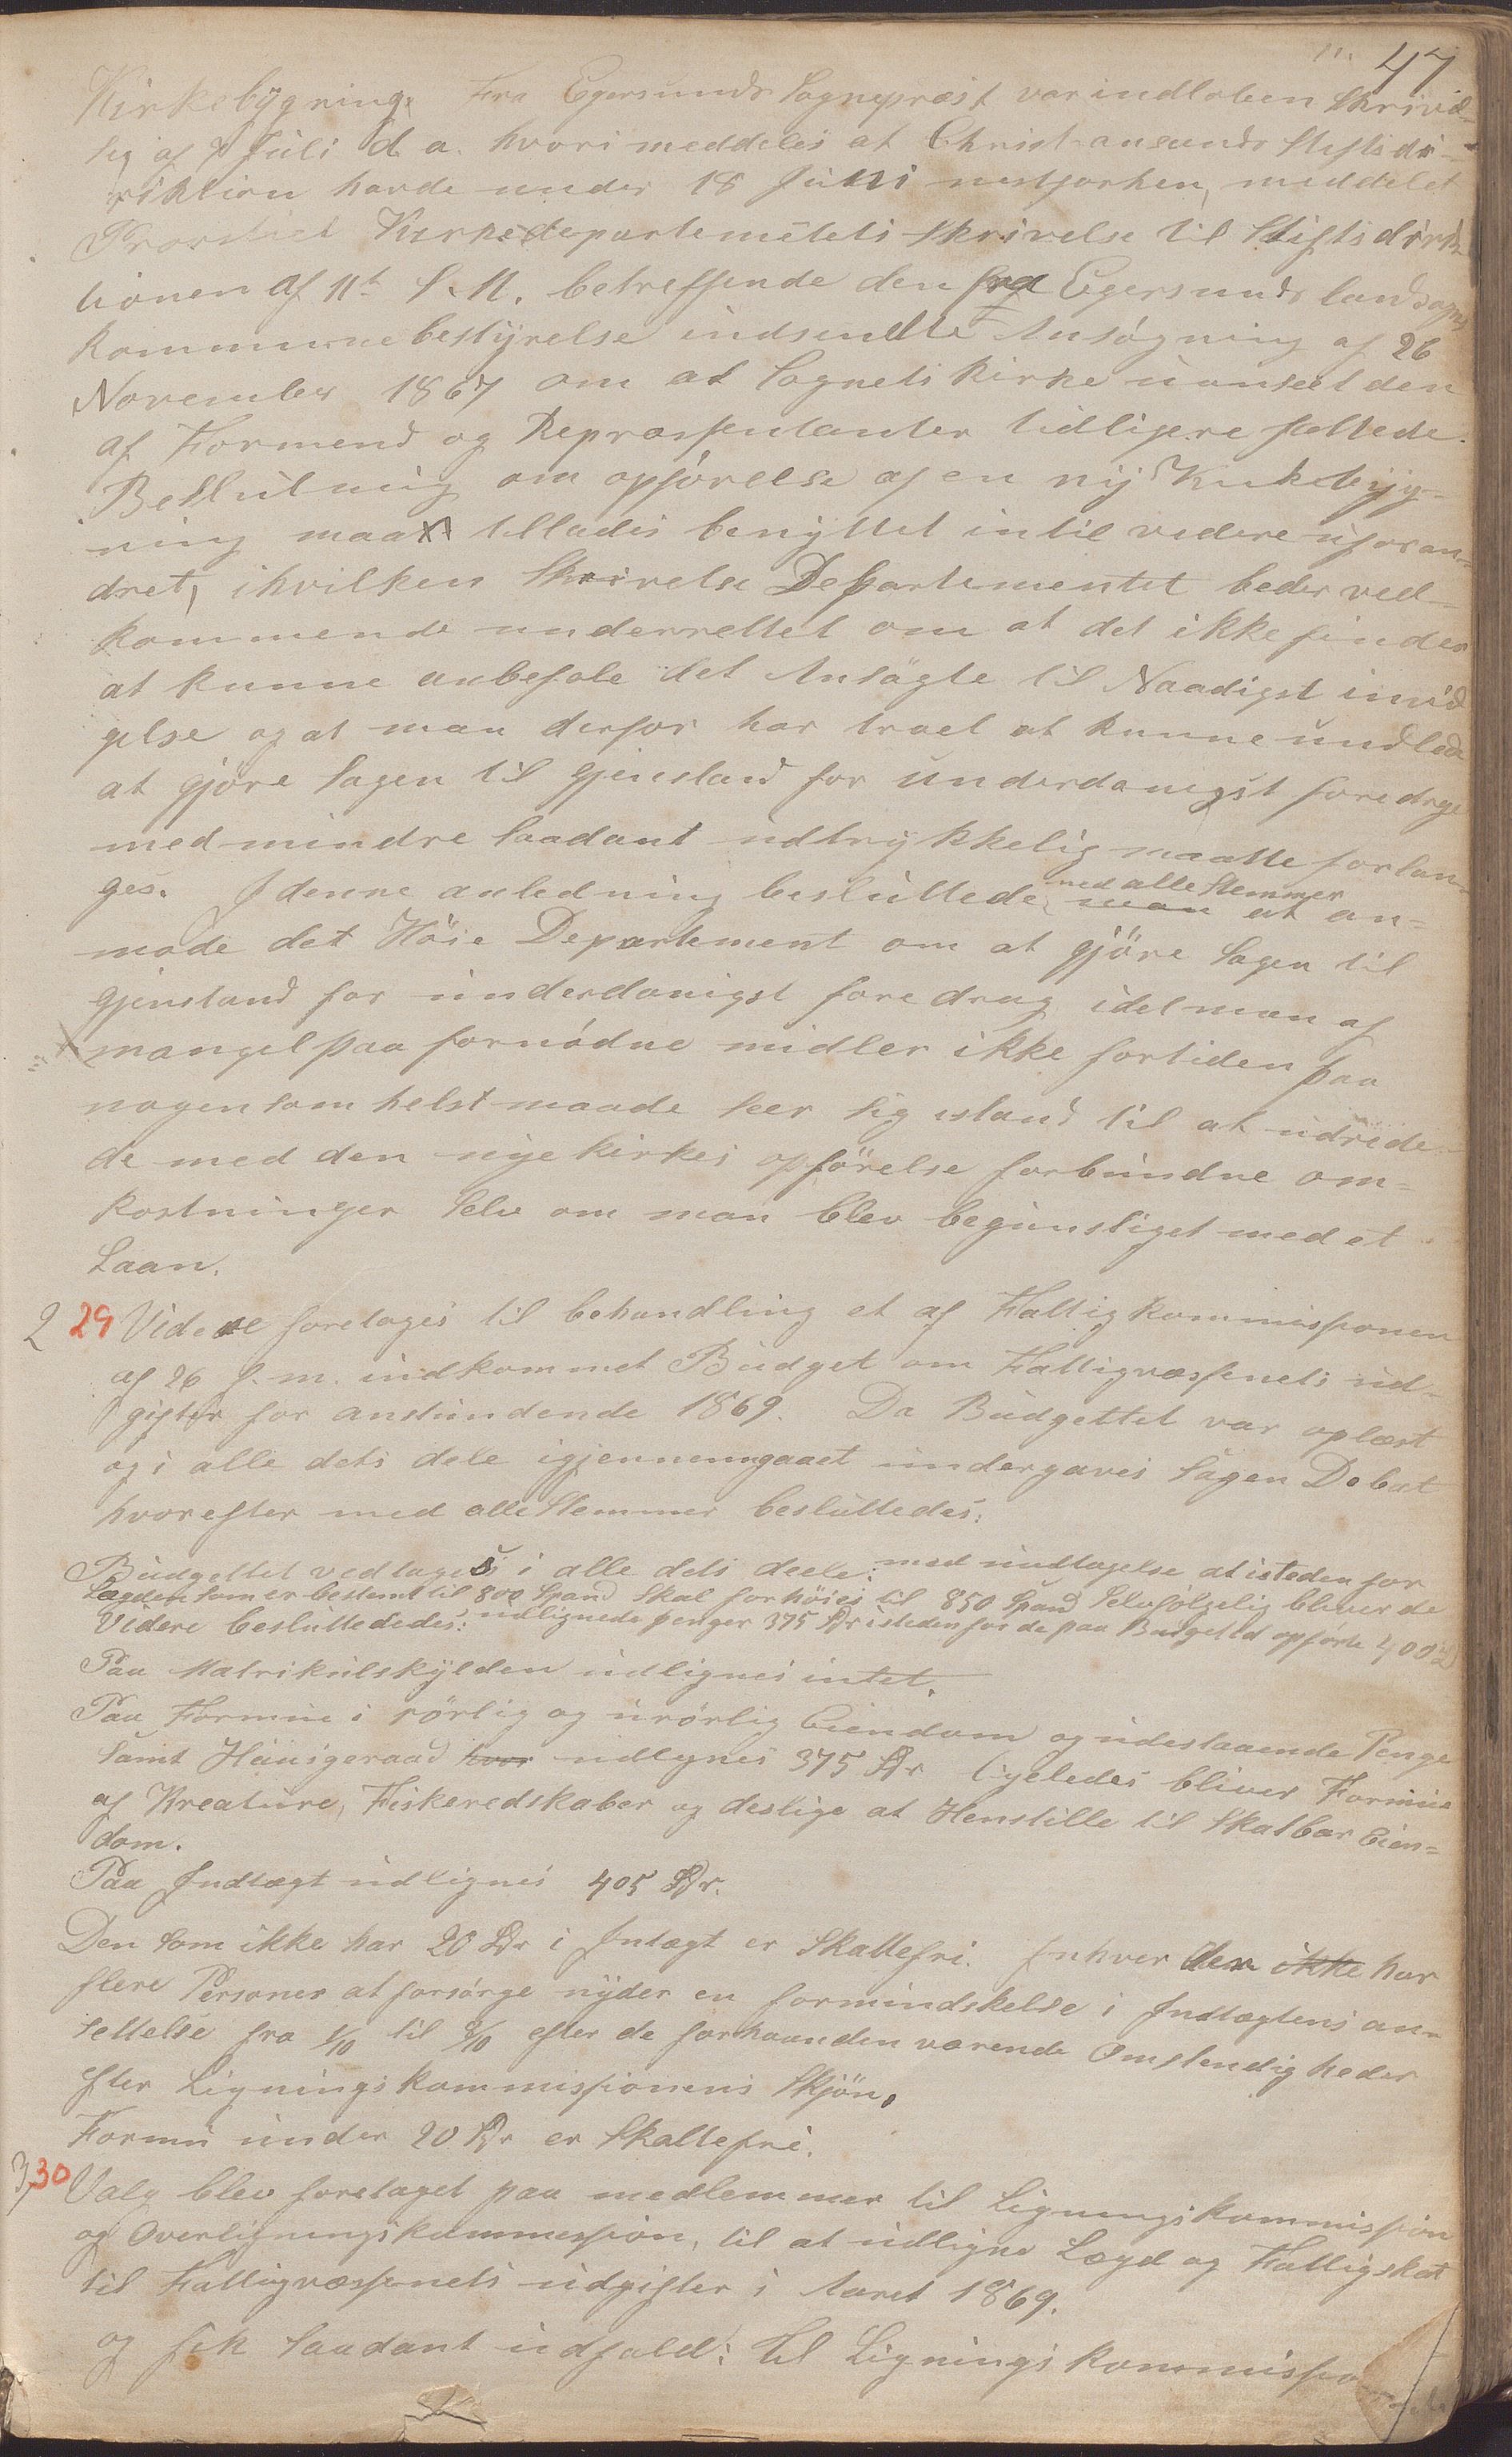 47
Kirkebygning. Fra Egersunds Sogneprest var indloben Skrivel-
se af 7 Juli d. a. hvori meddeles at Christiansands Stiftsdi-
riktion havde under 18 Juni nestforhen, meddelet
Provstiet Kirkedepartemetets Skrivelse til Stiftsdirik
tionen af 11te S. M. betreffende den fra Egersunds landsogns
Kommunebestyrelse indsendte Ansøgning af 26
November 1867 om at Sognets kirke uanseet den
af Formend og Repræssentanter tidligere fattede
Beslutning om opførelse af en ny Kirkebyg-
ning maa tillades benyttet intil videre uforan-
dret, ihvilken Skrivelse Departementet beder ved-
kommende underrettet om at det ikke findes
at kunne anbefale det Ansøgte til Naadigst invid
gelse og at man derfor har troet at kunne undlade
at gjöre Sagen til gjenstand for underdanigst foredrag
med mindre Saadant udtrykkelig maatte forlan-
ges. I denne anledning besluttede med alle Stemmer man at an-
mode det Höie Departement om at gjöre Sagen til
gjenstand for underdanigst foredrag idet man af
mangel paa fornødne midler ikke fortiden paa
nogensomhelst maade seer sig istand til at udrede
de med den nye kirkes opförelse forbundne om-
kostninger Selv om man blev begunstiget med et
Laan.
2 29 Videre foretoges til behandling et af Fattigkommissionen
af 26 f. m. indkommet Budget om Fattigvæssenets ud-
gifter for anstundende 1869. Da Budgettet var oplæst
og i alle dets dele igjennemgaaet undergaves Sagen Debat
hvorefter med alle Stemmer besluttedes:
Budgettet vedtages i alle dets deele: med undtagelse at isteden for
Lægden som er bestemt til 800 Spand Skal forhöies til 850 Spand Selvfölgelig bliver de
udlignede penger 375 Spdr istedenfor de paa Budgettet opførte 400
Videre besluttededes:
Paa Matrikulskylden udlignes intet.
Paa Formue i rörlig og urörlig Eiendom og udestaaende Penge
Samt Huusgeraad hvor udlignes 375 Spdr ligeledes bliver Formue
af Kreature, Fiskeredskaber og deslige at Henstille til Skatbar Eien-
dom.
Paa Indtægt udlignes 405 Spdr.
Den Som ikke har 20 Spdr i Intægt er Skattefri. Enhver der ikke har
flere Personer at forsørge nyder en formindskelse i Indtægtens an-
settelse fra 1/10 til 9/10 efter de forhaanden værende Omstendigheder
efter Ligningskommissionens Skjön.
Formu under 20 Spdr er Skattefri.
3 30 Valg blev foretaget paa medlemmer til Ligningskommission
og Overligningskommession, til at udligne Lægd og Fattigskat
til Fattigvæssenets udgifter i Aaret 1869.
og fik Saadant udfald: til Ligningskommissio